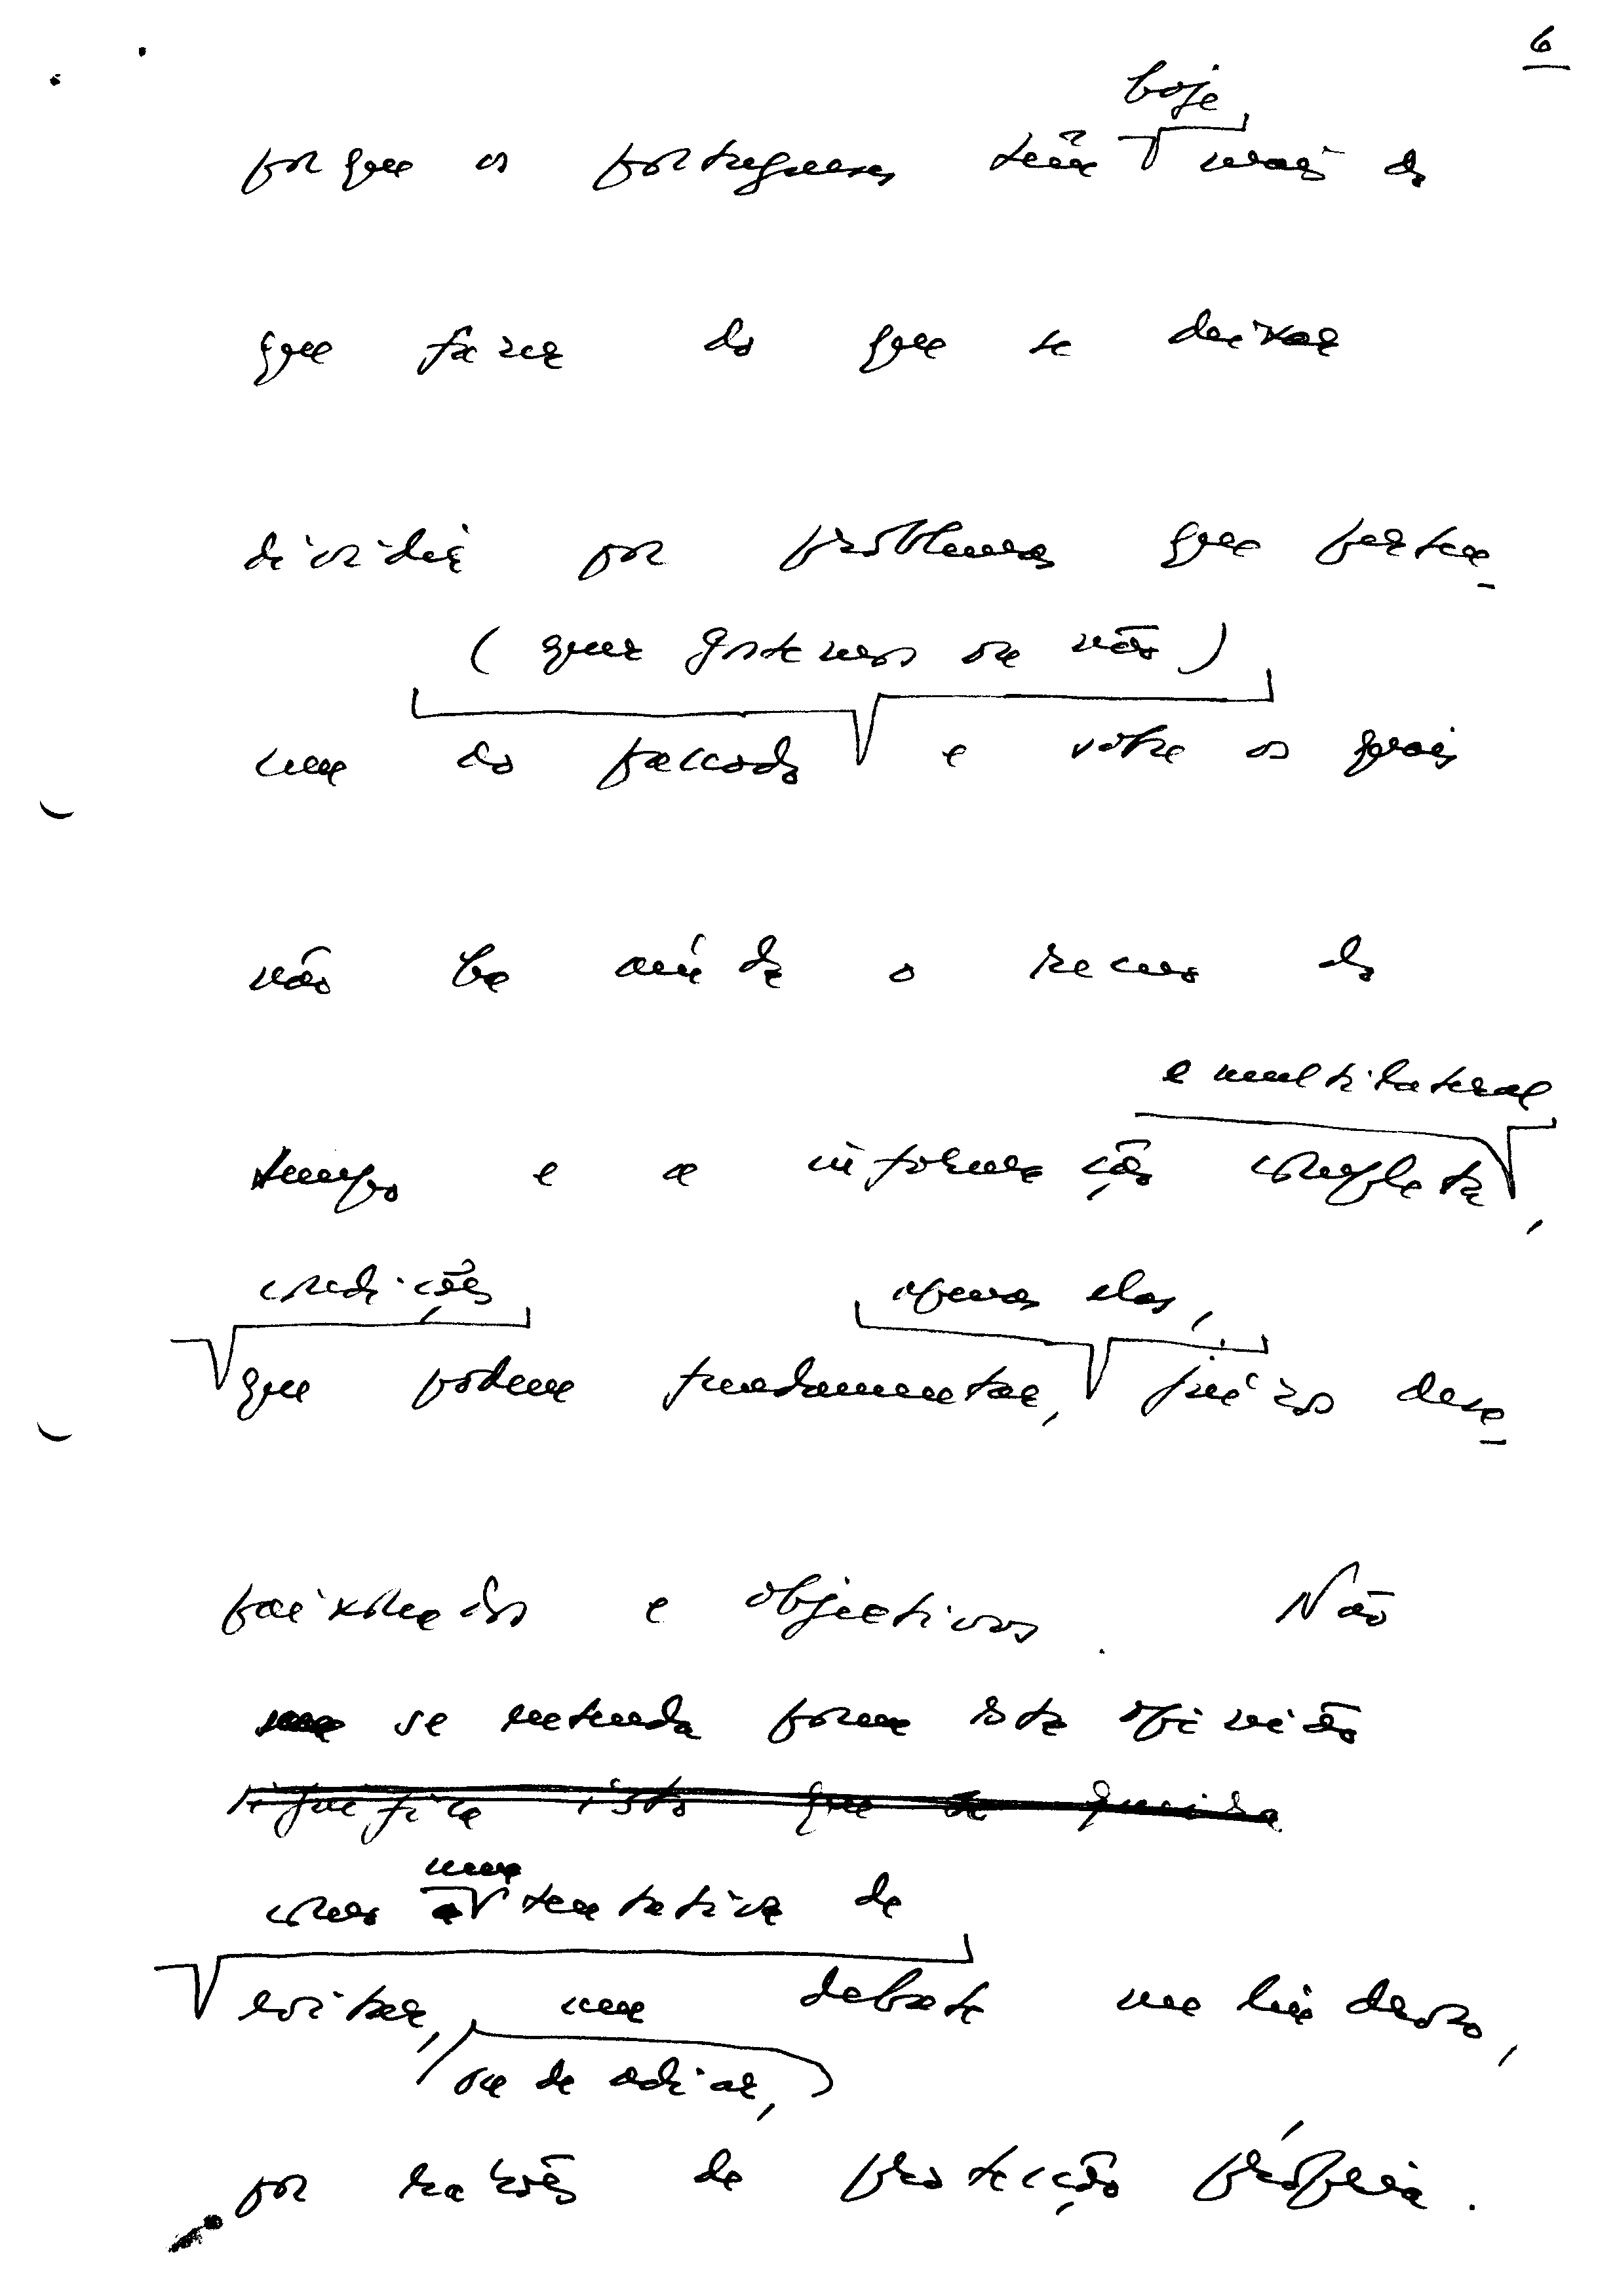 6
hoje
porque os portugueses têm mais do
que fazer do que se deixar
dividir por problemas que perten-
(quer gostemos ou não)
cem ao passado e sobre os quais
não há ainda o recuo do
e multilateral
tempo e a informação completa,
condições
apenas elas,
que podem fundamentar, juízos desa-
paixonados e objectivos. Não
se entenda porém esta opinião
significa isto que se queira
uma
como tentativa de
evitar, um debate melindroso,
ou de adiar,
por razões de protecção própria.